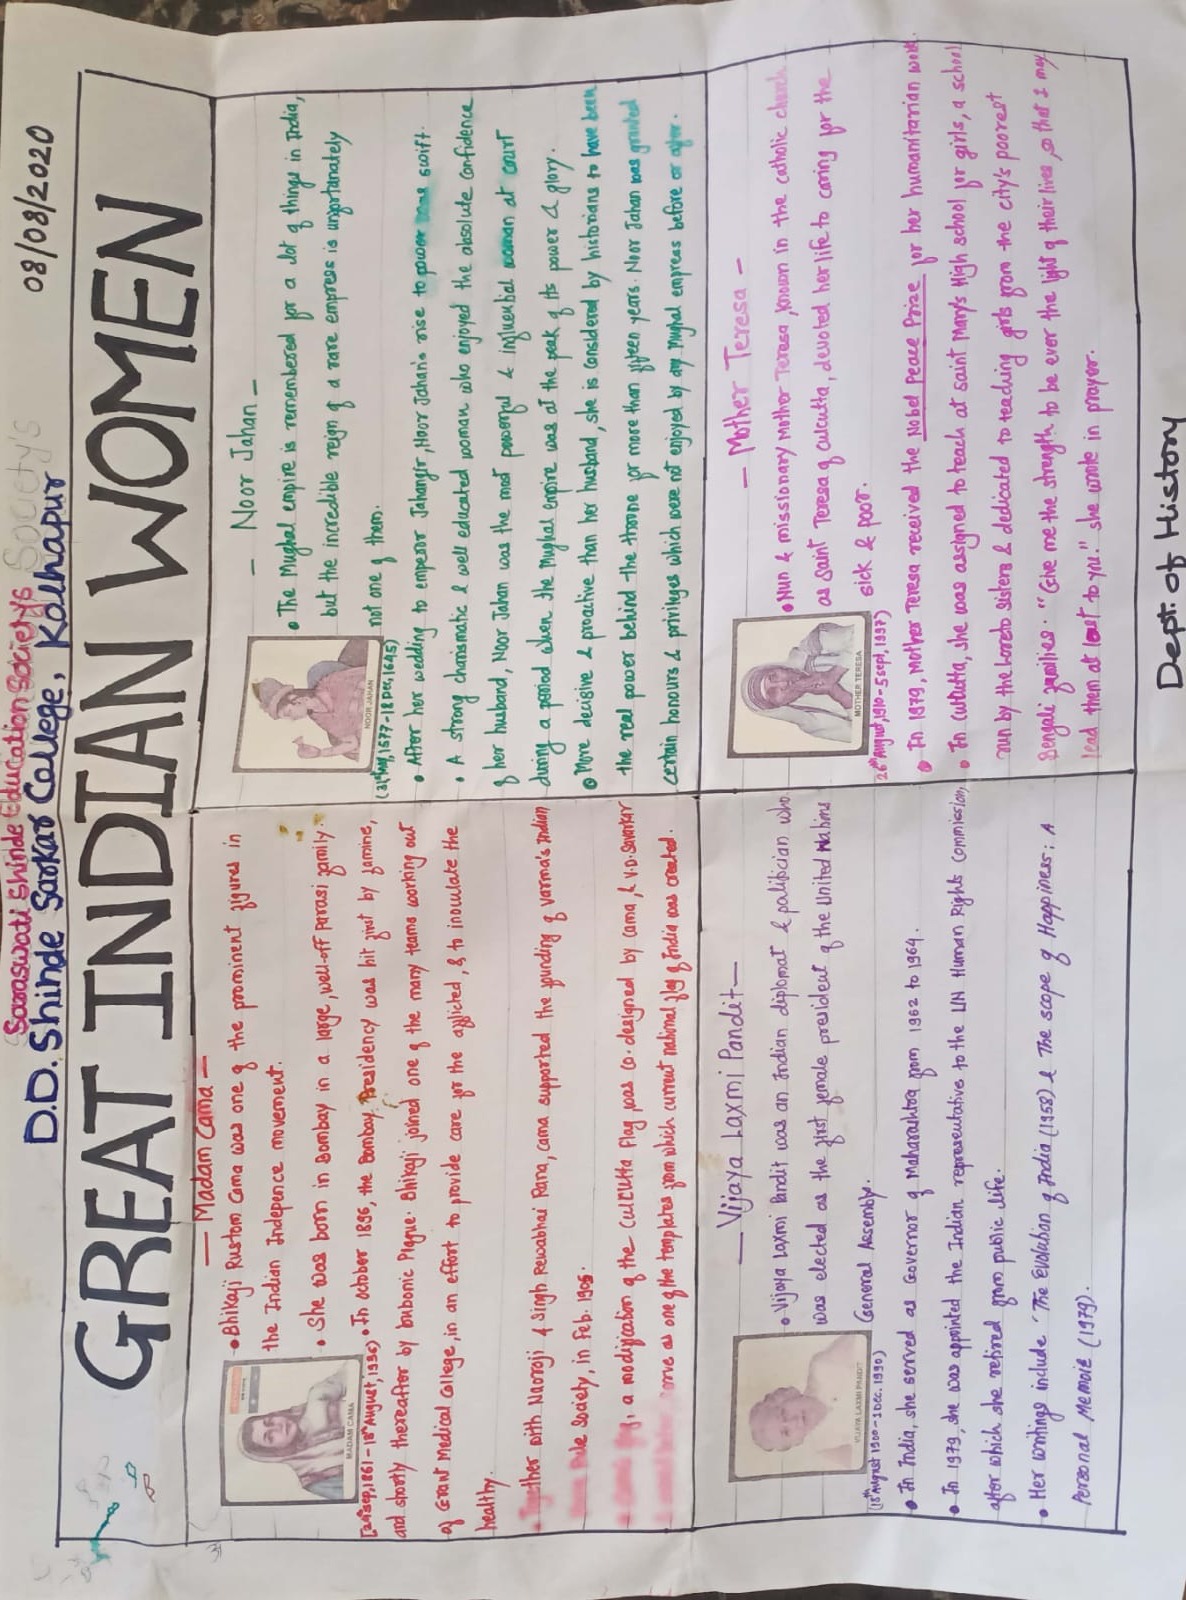 Saraswati Shinde Education Societys
Society's
D.D. Shinde Sarkar College, Kolhapur
08/08/2020
GREAT INDIAN WOMEN
— Madam Cama —
MADAM CAMA
[24th Sep, 1861 - 13th August, 1936)
• Bhikaji Rustom Cama was one of the prominent figures in
the Indian Indepence movement.
• She was born in Bombay in a large, well-off Parasi family.
• In october 1896, the Bombay Presidency was hit first by famine,
and shortly thereafter by bubonic Plague. Bhikaji joined one of the many teams working out
of Grant Medical College, in an effort to provide care for the afflicted, & to inoculate the
healthy.
• Together with Naoroji & Singh Rewabhai Rana, cama supported the founding of varma's Indian
Rule Society, in Feb. 1905.
a modification of the Culcutta Flag, was co-designed by cama, & V.D. Savarkar
serve as one of the templates from which current national flag of India was created.
— Noor Jahan —
NOOR JAHAN
(31st May, 1577 - 18 Dec, 1645)
• The Mughal empire is remembered for a lot of things in India,
but the incredible reign of a rare empress is unfortunately
not one of them.
• After her wedding to emperor Jahangir, Noor Jahan's rise to power was swift.
• A strong charismatic & well educated woman who enjoyed the absolute confidence
of her husband, Noor Jahan was the most powerful & influential woman at court
during a period when the Mughal empire was at the peak of its power & glory.
• More decisive & proactive than her husband, she is considered by historians to have been
the real power behind the throne for more than fifteen years. Noor Jahan was granted
certain honours & privileges which were not enjoyed by any Mughal empress before or after.
— Vijaya Laxmi Pandit —
VIJAYA LAXMI PANDIT
(18th August 1900 - 1 Dec. 1990)
• Vijaya Laxmi Pandit was an Indian diplomat & politician who
was elected as the first female president of the United Nations
General Assembly.
• In India, she served as Governor of Maharashtra from 1962 to 1964.
• In 1979, she was appointed the Indian representative to the UN Human Rights Commission,
after which she retired from public life.
• Her writings include 'The Evolution of India (1958) & The scope of Happiness: A
Personal Memoir (1979).
— Mother Teresa —
MOTHER TERESA
26th August, 1910 - 5 sept, 1997)
• Nun & missionary Mother Teresa, known in the catholic church
as Saint Teresa of Culcutta, devoted her life to caring for the
sick & poor.
• In 1979, Mother Teresa received the Nobel Peace Prize for her humanitarian work.
• In Culcutta, she was assigned to teach at Saint Mary's High school for girls, a school
run by the Loreto Sisters & dedicated to teaching girls from the city's poorest
Bengali families. "Give me the strength to be ever the light of their lives, so that I may
lead them at last to you." she wrote in prayer.
Dept. of History